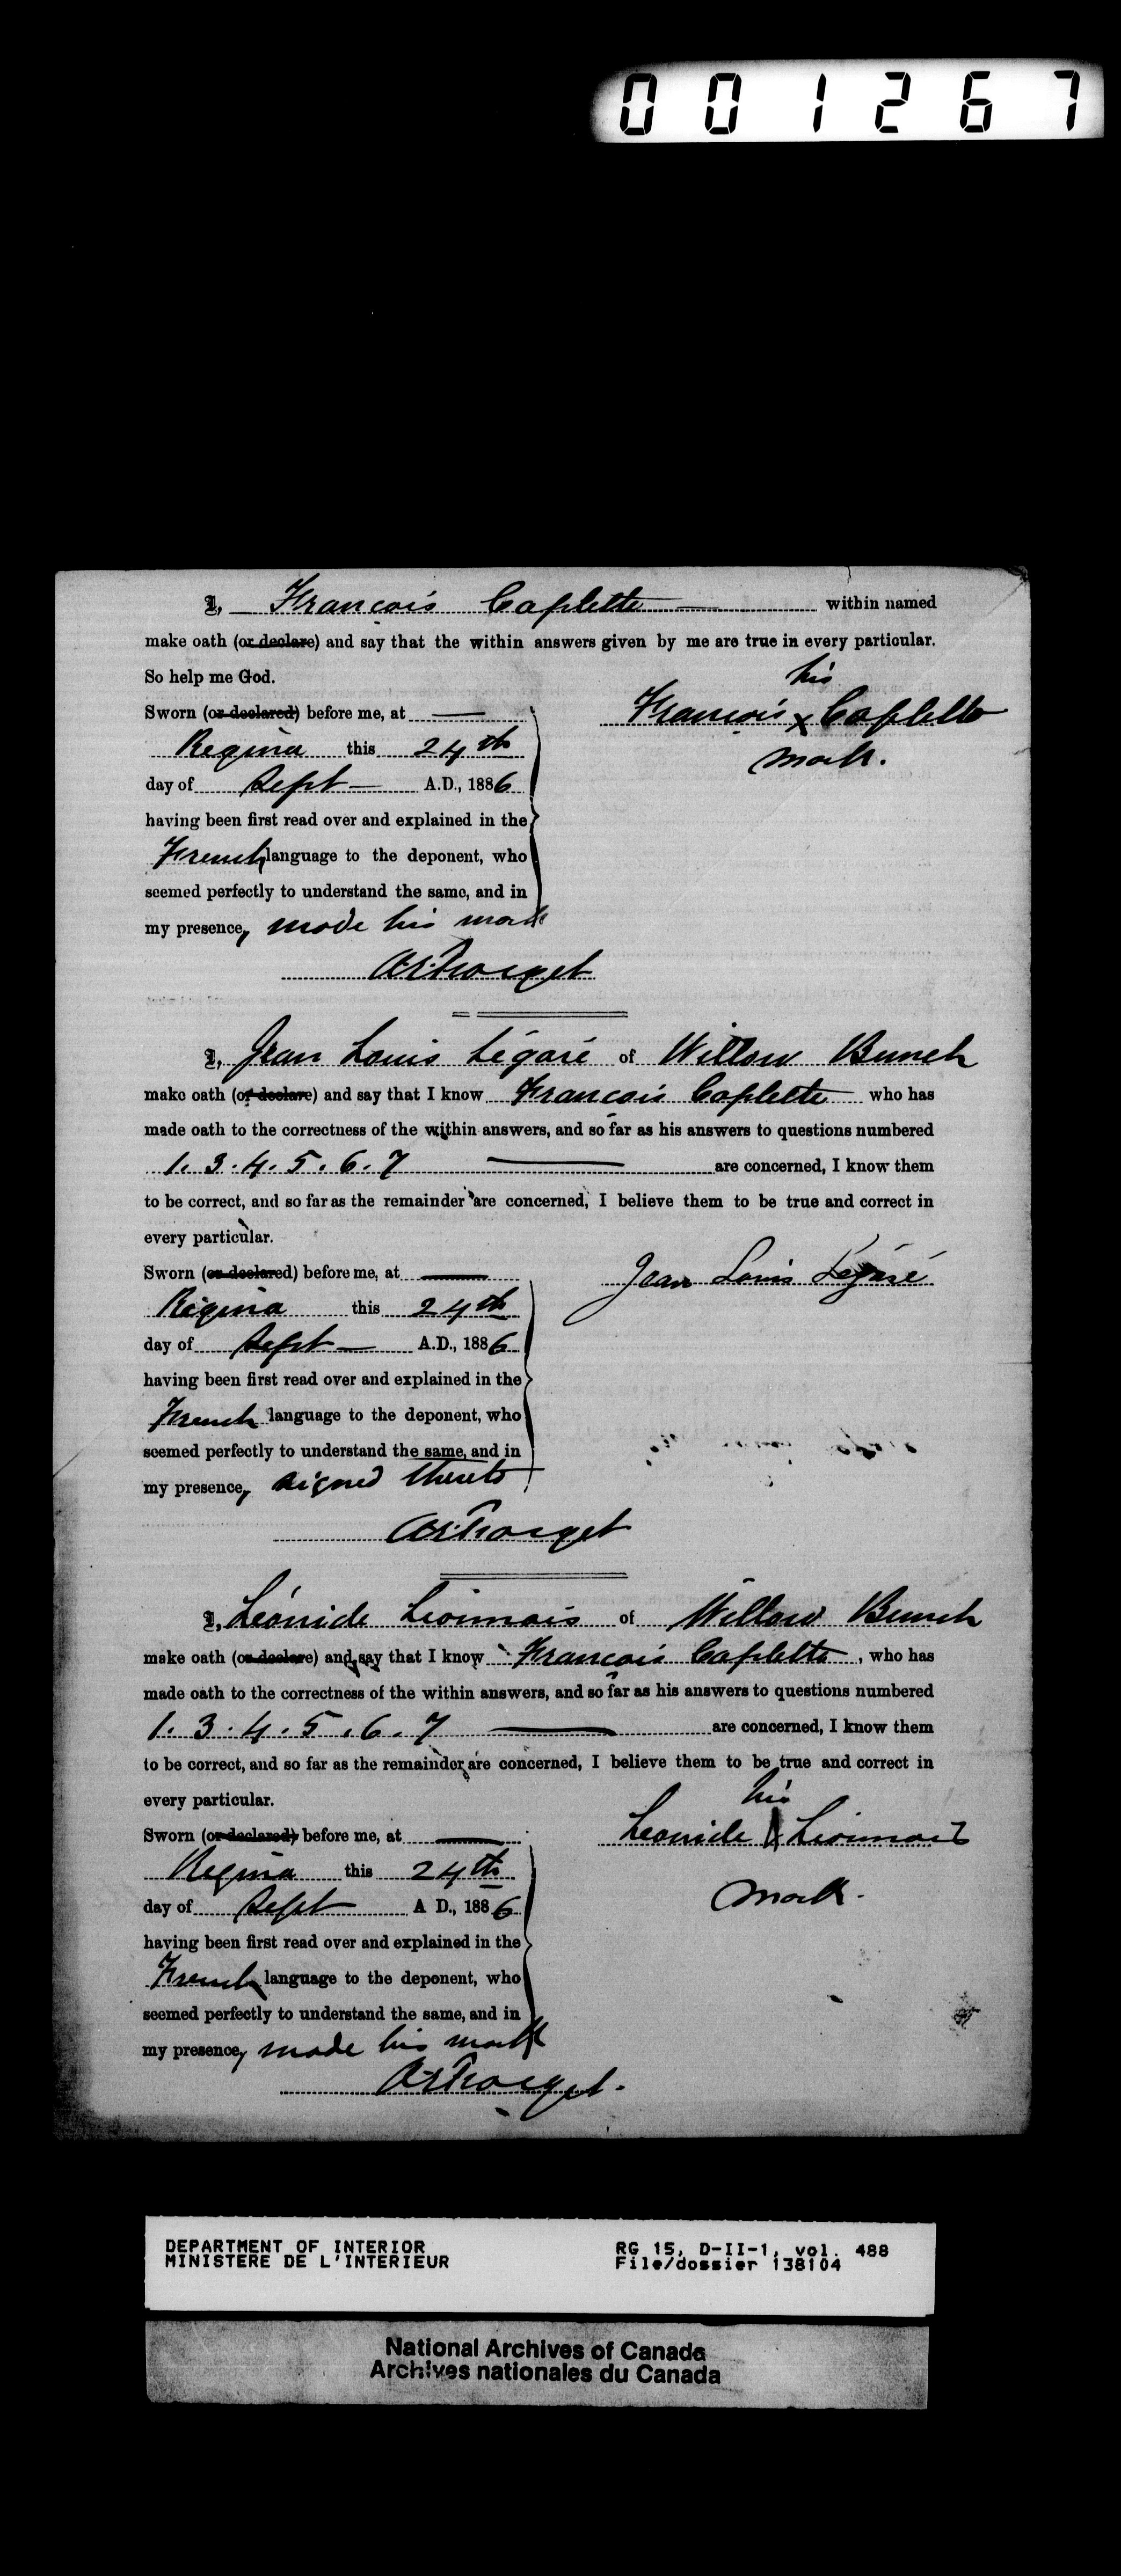 001267
I, François Caplette within named
make oath (or declare) and say that the within answers given by me are true in every particular.
So help me God.
his
Sworn (or declared) before me, at
François X Caplette
Regina this 24th
mark.
day of Sept A.D., 1886
having been first read over and explained in the
French language to the deponent, who
seemed perfectly to understand the same, and in
my presence, made his mark
A. E. Forget
I, Jean Louis Légaré of Willow Bunch
make oath (or declare) and say that I know François Caplette who has
made oath to the correctness of the within answers, and so far as his answers to questions numbered
1. 3. 4. 5. 6. 7 are concerned, I know them
to be correct, and so far as the remainder are concerned, I believe them to be true and correct in
every particular.
Sworn (or declared) before me, at
Jean Louis Légaré
Regina this 24th
day of Sept A.D., 1886
having been first read over and explained in the
French language to the deponent, who
seemed perfectly to understand the same, and in
my presence, signed thereto
A. E. Forget
I, Léonide Lionnais of Willow Bunch
make oath (or declare) and say that I know François Caplette, who has
made oath to the correctness of the within answers, and so far as his answers to questions numbered
1. 3. 4. 5. 6. 7 are concerned, I know them
to be correct, and so far as the remainder are concerned, I believe them to be true and correct in
every particular.
his
Sworn (or declared) before me, at
Leonide X Lionnais
Regina this 24th
mark.
day of Sept A D., 1886
having been first read over and explained in the
French language to the deponent, who
seemed perfectly to understand the same, and in
my presence, made his mark
A. E. Forget.
DEPARTMENT OF INTERIOR
MINISTERE DE L'INTERIEUR
RG 15, D-II-1, vol. 488
File/dossier 138104
National Archives of Canada
Archives nationales du Canada